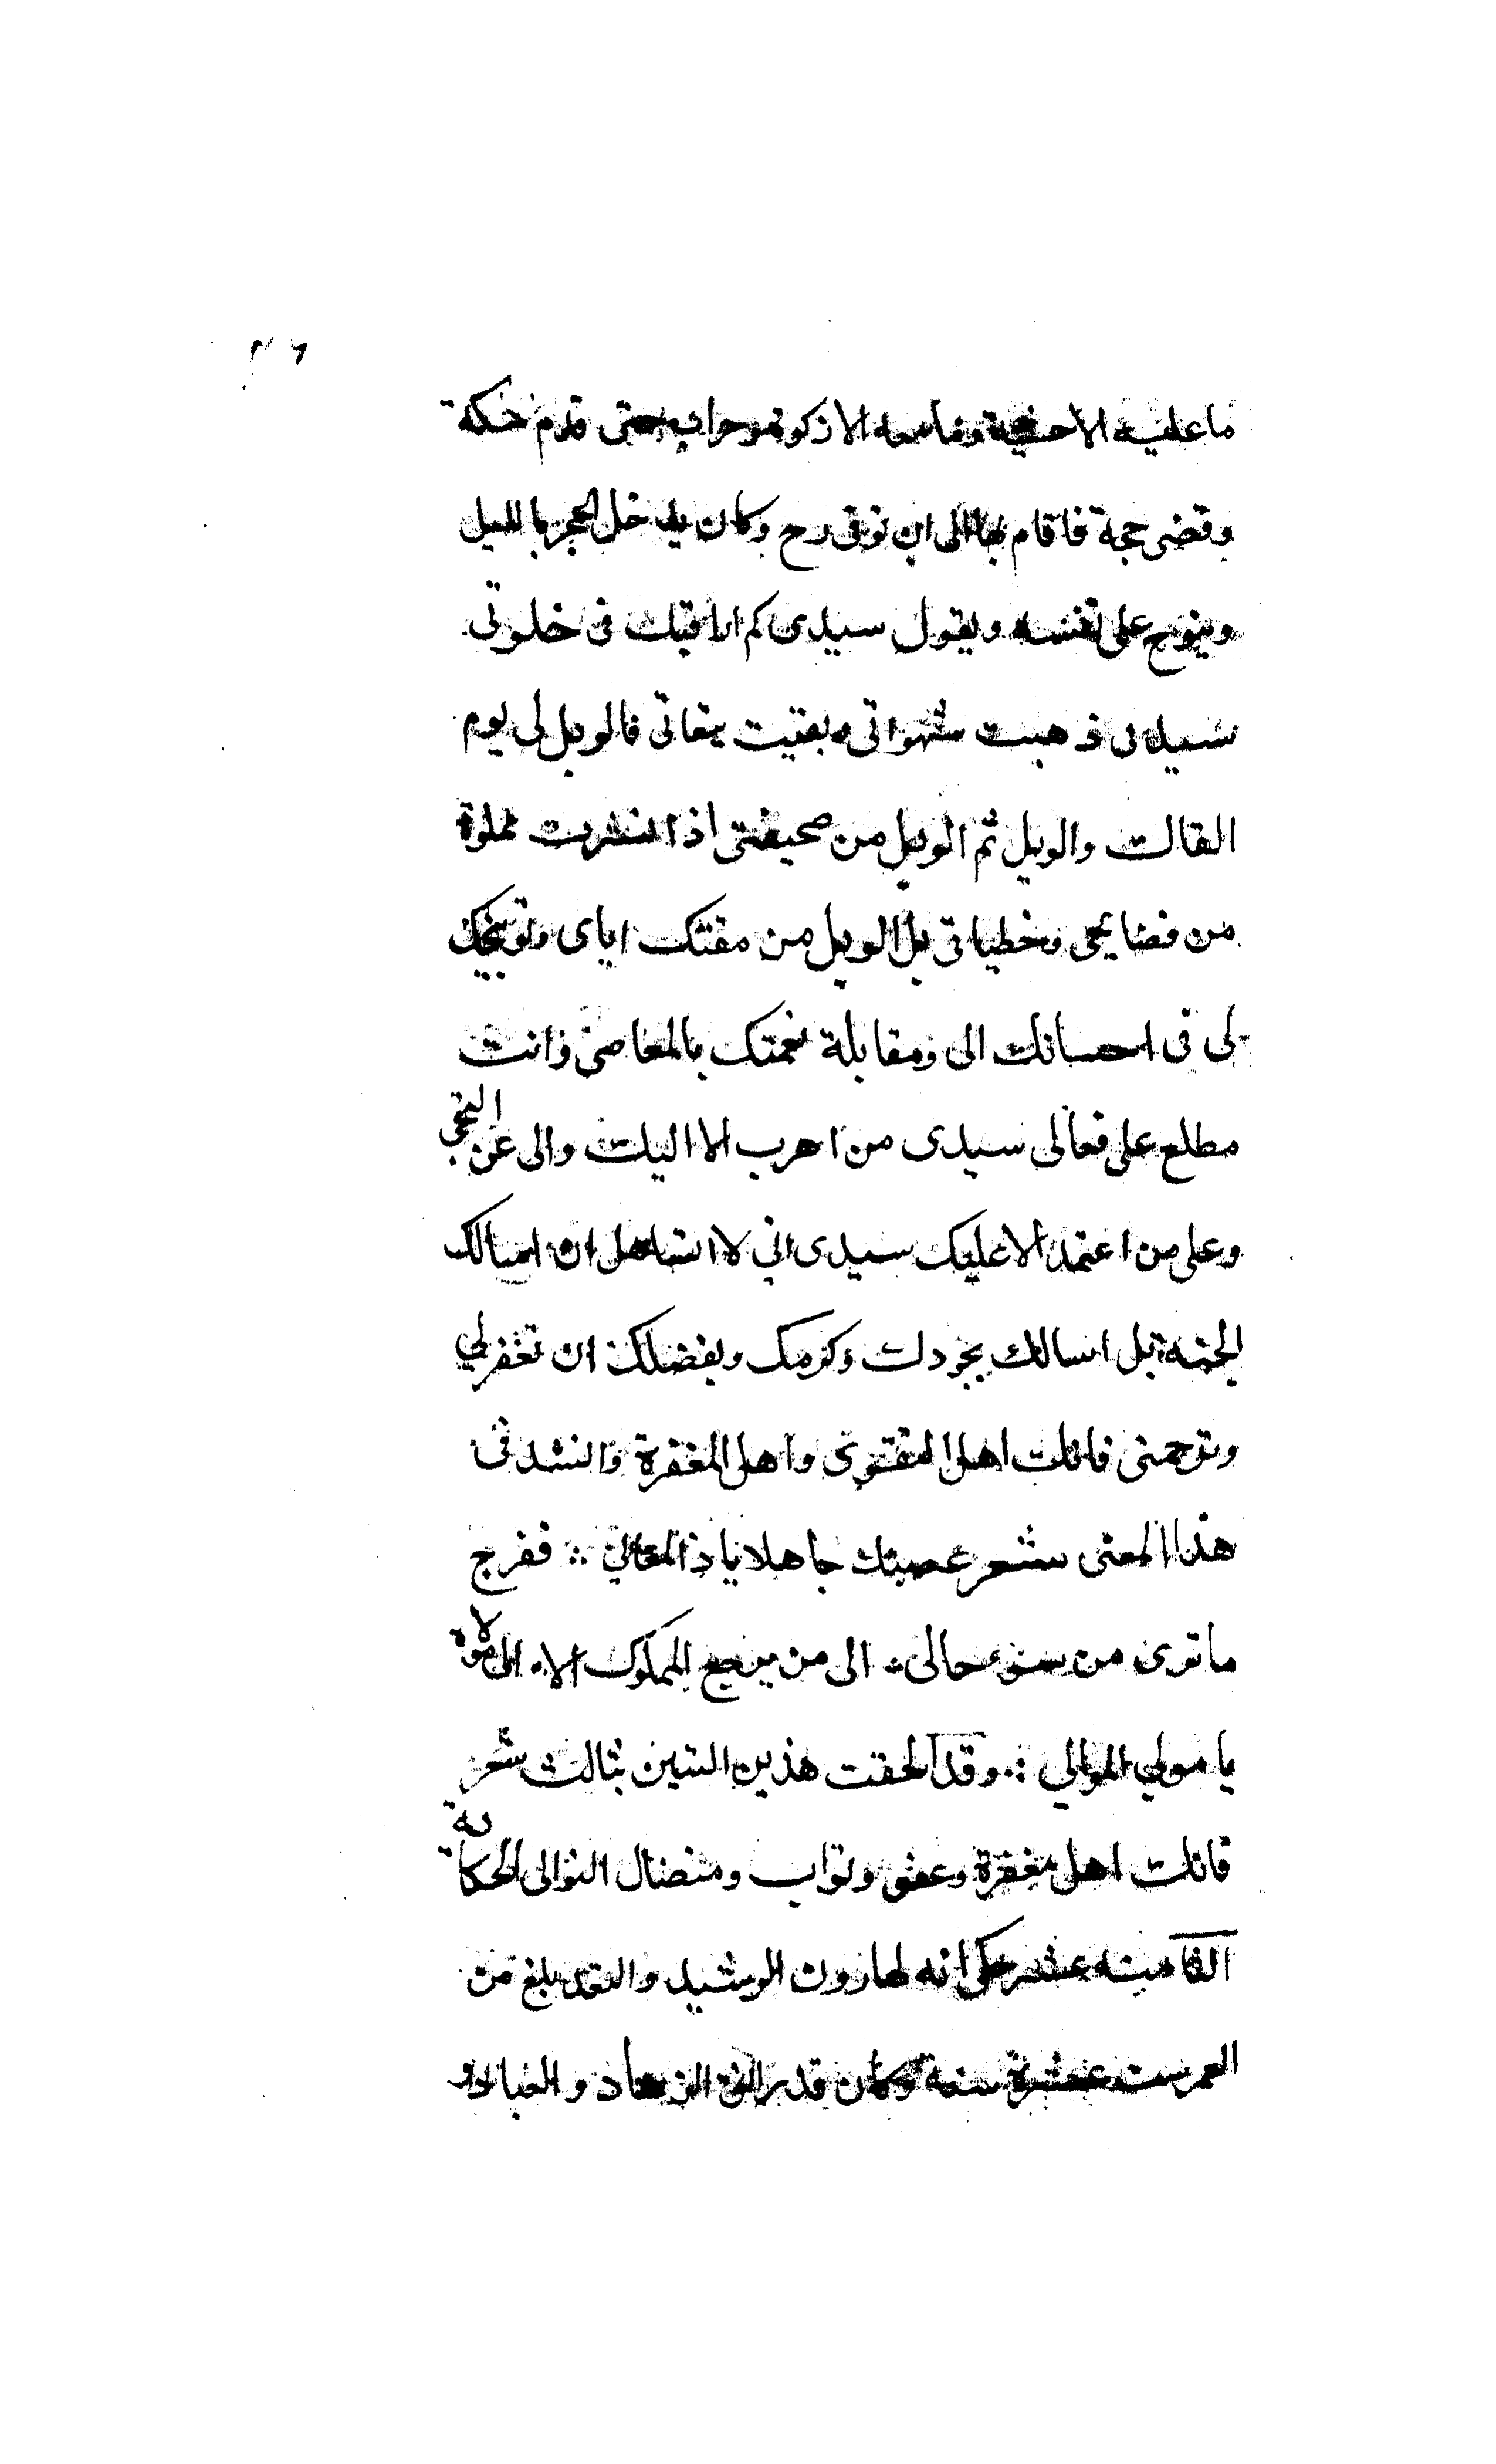 ما عليه الا جبة وما معه الا ركوة وجراب حتى قدم مكة
وقضى حجة فاقام بها الى ان توفى رح وكان يدخل الحجر بالليل
وينوح على نفسه ويقول سيدى كم اراقبك فى خلوتى
سيدى ذهبت شهواتى وبقيت تبعاتى فالويل لى يوم
القاك والويل ثم الويل من صحيفتى اذا نشرت مملوة
من فضايحى وخطياتى بل الويل من مقتك اياى وتوبيخك
لى فى احسانك الى ومقابلة نعمتك بالمعاصى وانت
مطلع على فعالى سيدى من اهرب الا اليك والى من التجى
وعلى من اعتمد الا عليك سيدى انى لا استاهل ان اسالك
الجنة بل اسالك بجودك وكرمك وبفضلك ان تغفر لي
وترحمنى فانك اهل التقوى واهل المغفرة وانشد فى
هذا المعنى شعر عصيتك جاهلا يا ذا المعالي ∴ ففرج
ما ترى من سوء حالى ∴ الى من يرجع المملوك الا الى مولاه
يا مولي الموالي ∴ وقد الحقت هذين البتين بثالث شعر
فانك اهل مغفرة وعفو وتواب ومفضال النوالى الحكاية
الثامنه عشر حكى انه لهارون الرشيد ولد قد بلغ من
العمر ست عشرة سنة وكان قد رافق الزهاد والعباد و